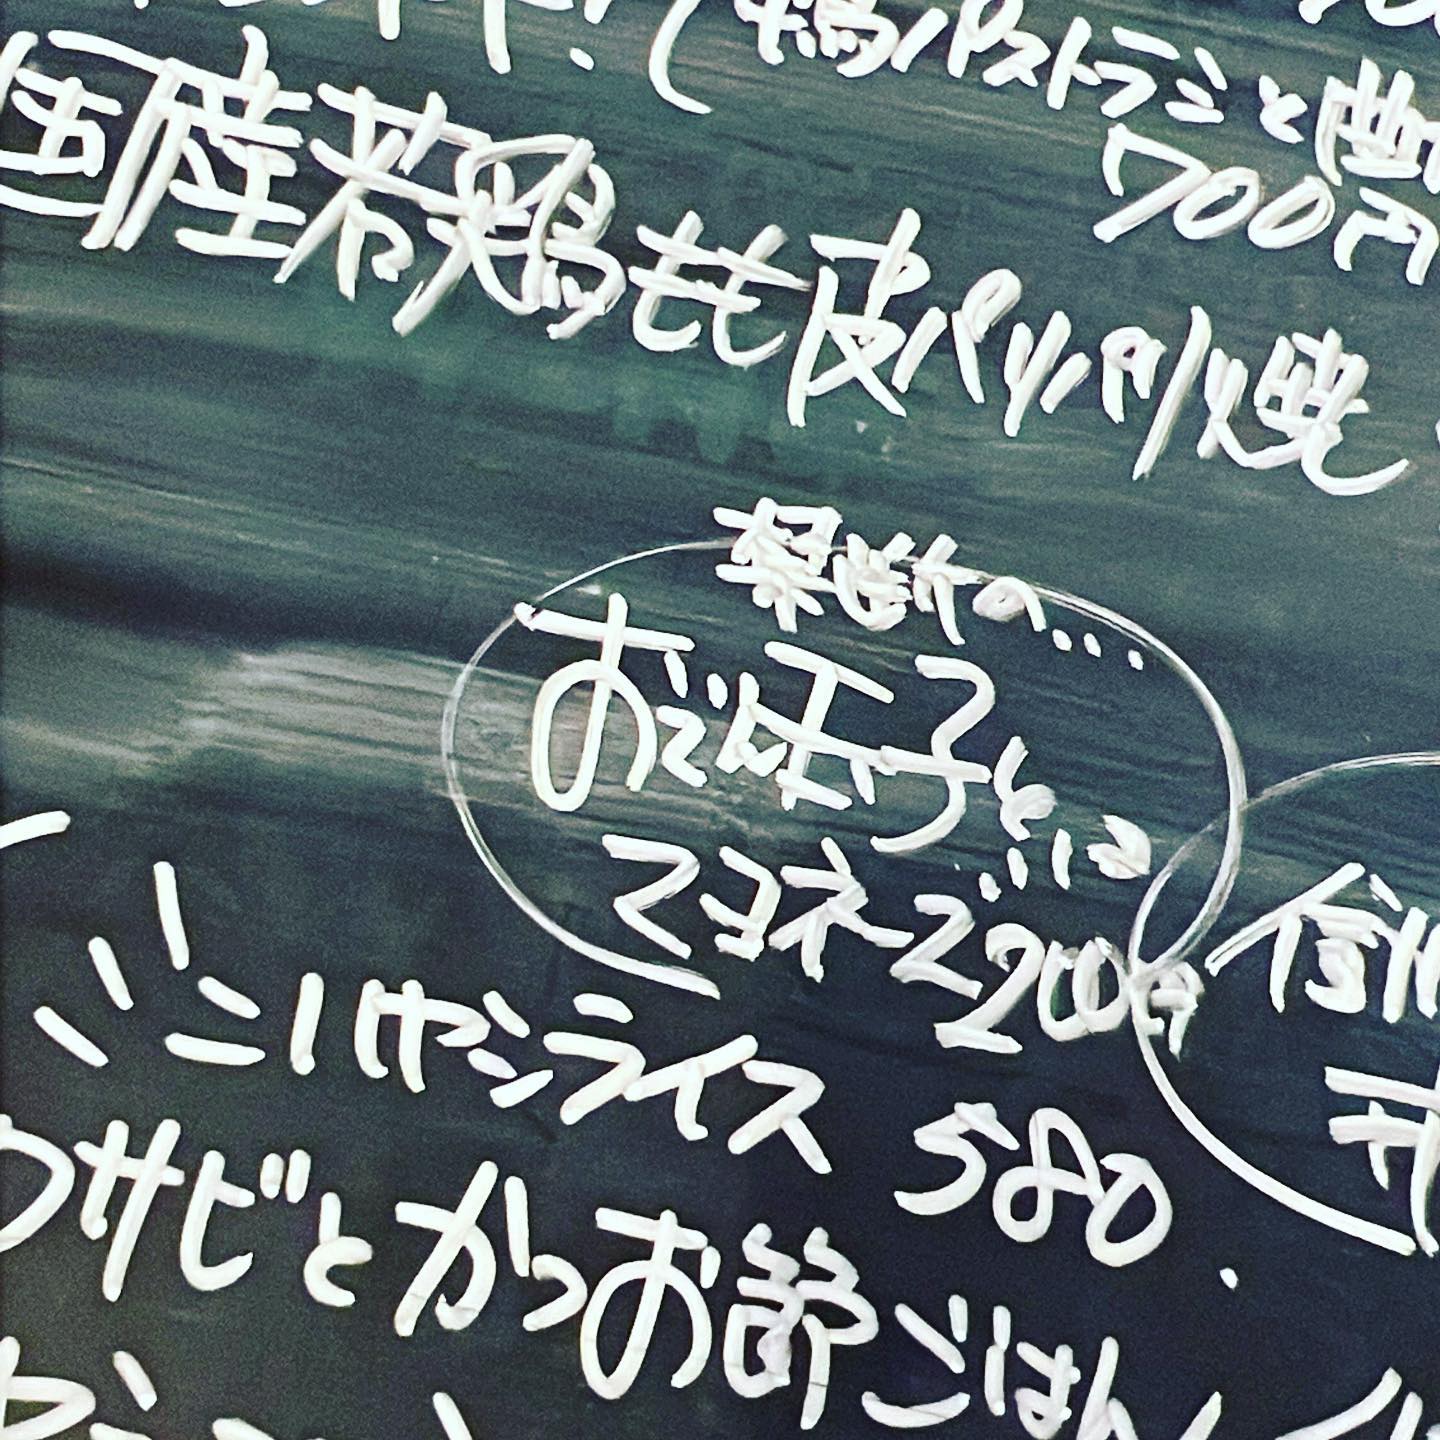 鴨パストラミと
700円
国産若鶏もも皮パリパリ焼
禁断の...
おでん玉子とに
マヨネーズ200円
ニ！ハヤシライス
580
ワサビとかつお節ごはん